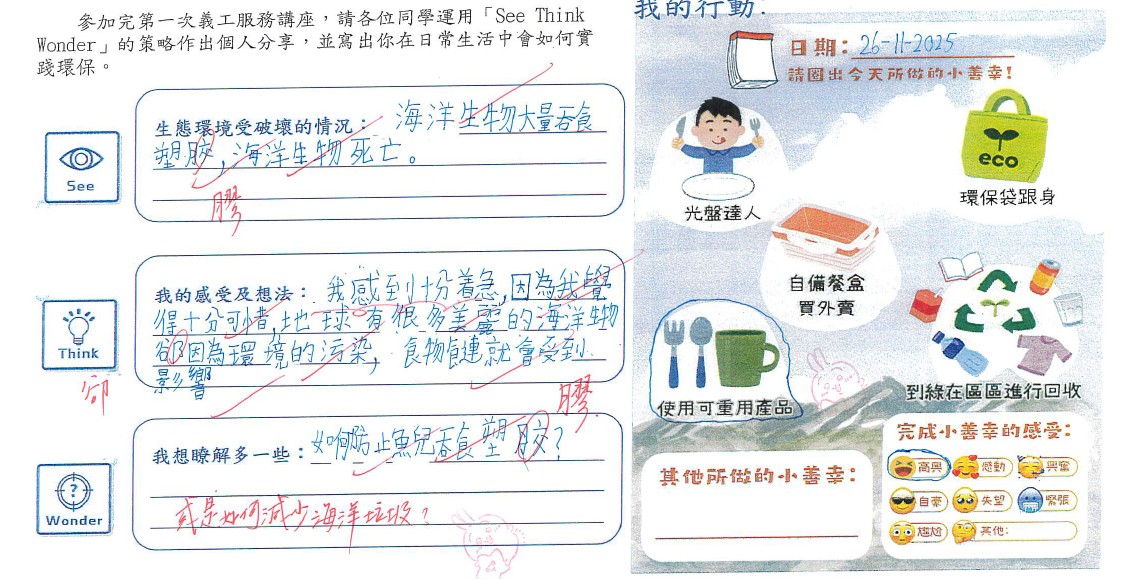 參加完第一次義工服務講座，請各位同學運用「See Think
Wonder」的策略作出個人分享，並寫出你在日常生活中會如何實
踐環保。
See
生態環境受破壞的情況： 海洋生物大量吞食
塑胶,海洋生物死亡。
膠
Think
我的感受及想法： 我感到十分着急,因為我覺
得十分可惜,地球有很多美麗的海洋生物
卻因為環境的污染, 食物鏈就會受到
影響
卻
膠
Wonder
我想瞭解多一些：如何防止魚兒吞食塑胶?
或是如何減少海洋垃圾？
我的行動：
日期：26-11-2025
請圈出今天所做的小善幸！
光盤達人
eco
環保袋跟身
自備餐盒
買外賣
使用可重用產品
到綠在區區進行回收
其他所做的小善幸：
完成小善幸的感受：
高興
感動
興奮
自豪
失望
緊張
尷尬
其他：